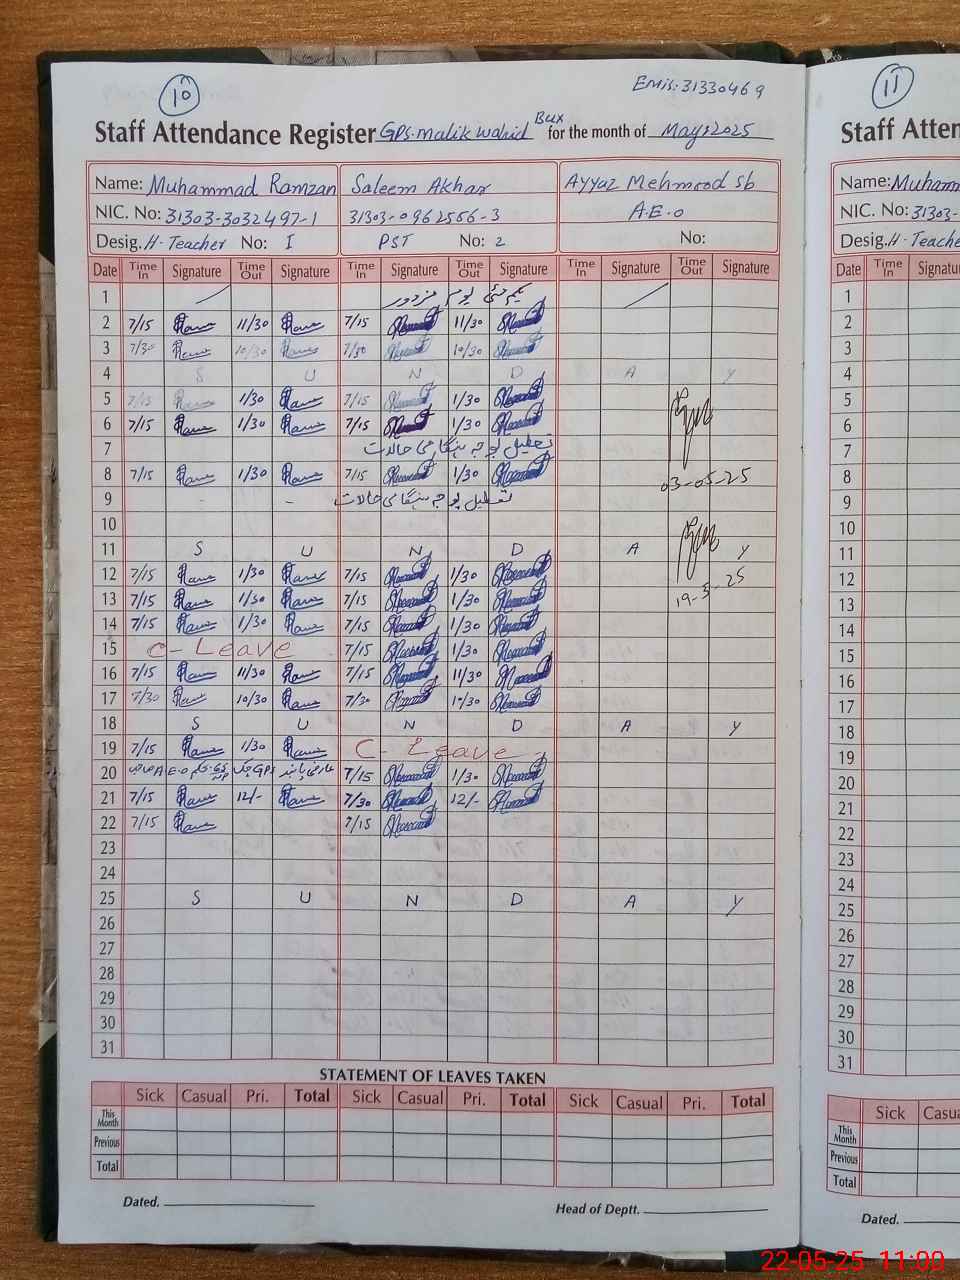 10
Emis:31330469
Staff Attendance Register GPS. Malik Wahid Bux for the month of May,2025
Name: Muhammad Ramzan Saleem Akhar Ayyaz Mehmood Sb
NIC. No: 31303-3032497-1 31303-0962556-3 A.E.O
Desig. H. Teacher No: I PST No: 2 No:
Date Time In Signature Time Out Signature Time In Signature Time Out Signature Time In Signature Time Out Signature
1 یکم مئی یوم مزدور
2 7/15 11/30 7/15 11/30
3 7/30 10/30 7/30 10/30
4 S U N D A Y
5 7/15 1/30 7/15 1/30
6 7/15 1/30 7/15 1/30
7 تعطیل بوجہ ہنگامی حالات
8 7/15 1/30 7/15 1/30 03-05-25
9 - - تعطیل بوجہ ہنگامی حالات
10
11 S U N D A Y
12 7/15 1/30 7/15 1/30
13 7/15 1/30 7/15 1/30 19-5-25
14 7/15 1/30 7/15 1/30
15 C-Leave 7/15 1/30
16 7/15 11/30 7/15 11/30
17 7/30 10/30 7/30 10/30
18 S U N D A Y
19 7/15 1/30 C-Leave
20 A.E.O GPS 7/15 1/30
21 7/15 12/- 7/30 12/-
22 7/15 7/15
23
24
25 S U N D A Y
26
27
28
29
30
31
STATEMENT OF LEAVES TAKEN
Sick Casual Pri. Total Sick Casual Pri. Total Sick Casual Pri. Total
This Month
Previous
Total
Dated.
Head of Deptt.
11
Staff Atten
Name: Muhamm
NIC. No: 31303-
Desig. H. Teache
Date Time In Signature
1
2
3
4
5
6
7
8
9
10
11
12
13
14
15
16
17
18
19
20
21
22
23
24
25
26
27
28
29
30
31
Sick Casu
This Month
Previous
Total
Dated.
22-05-25 11:00